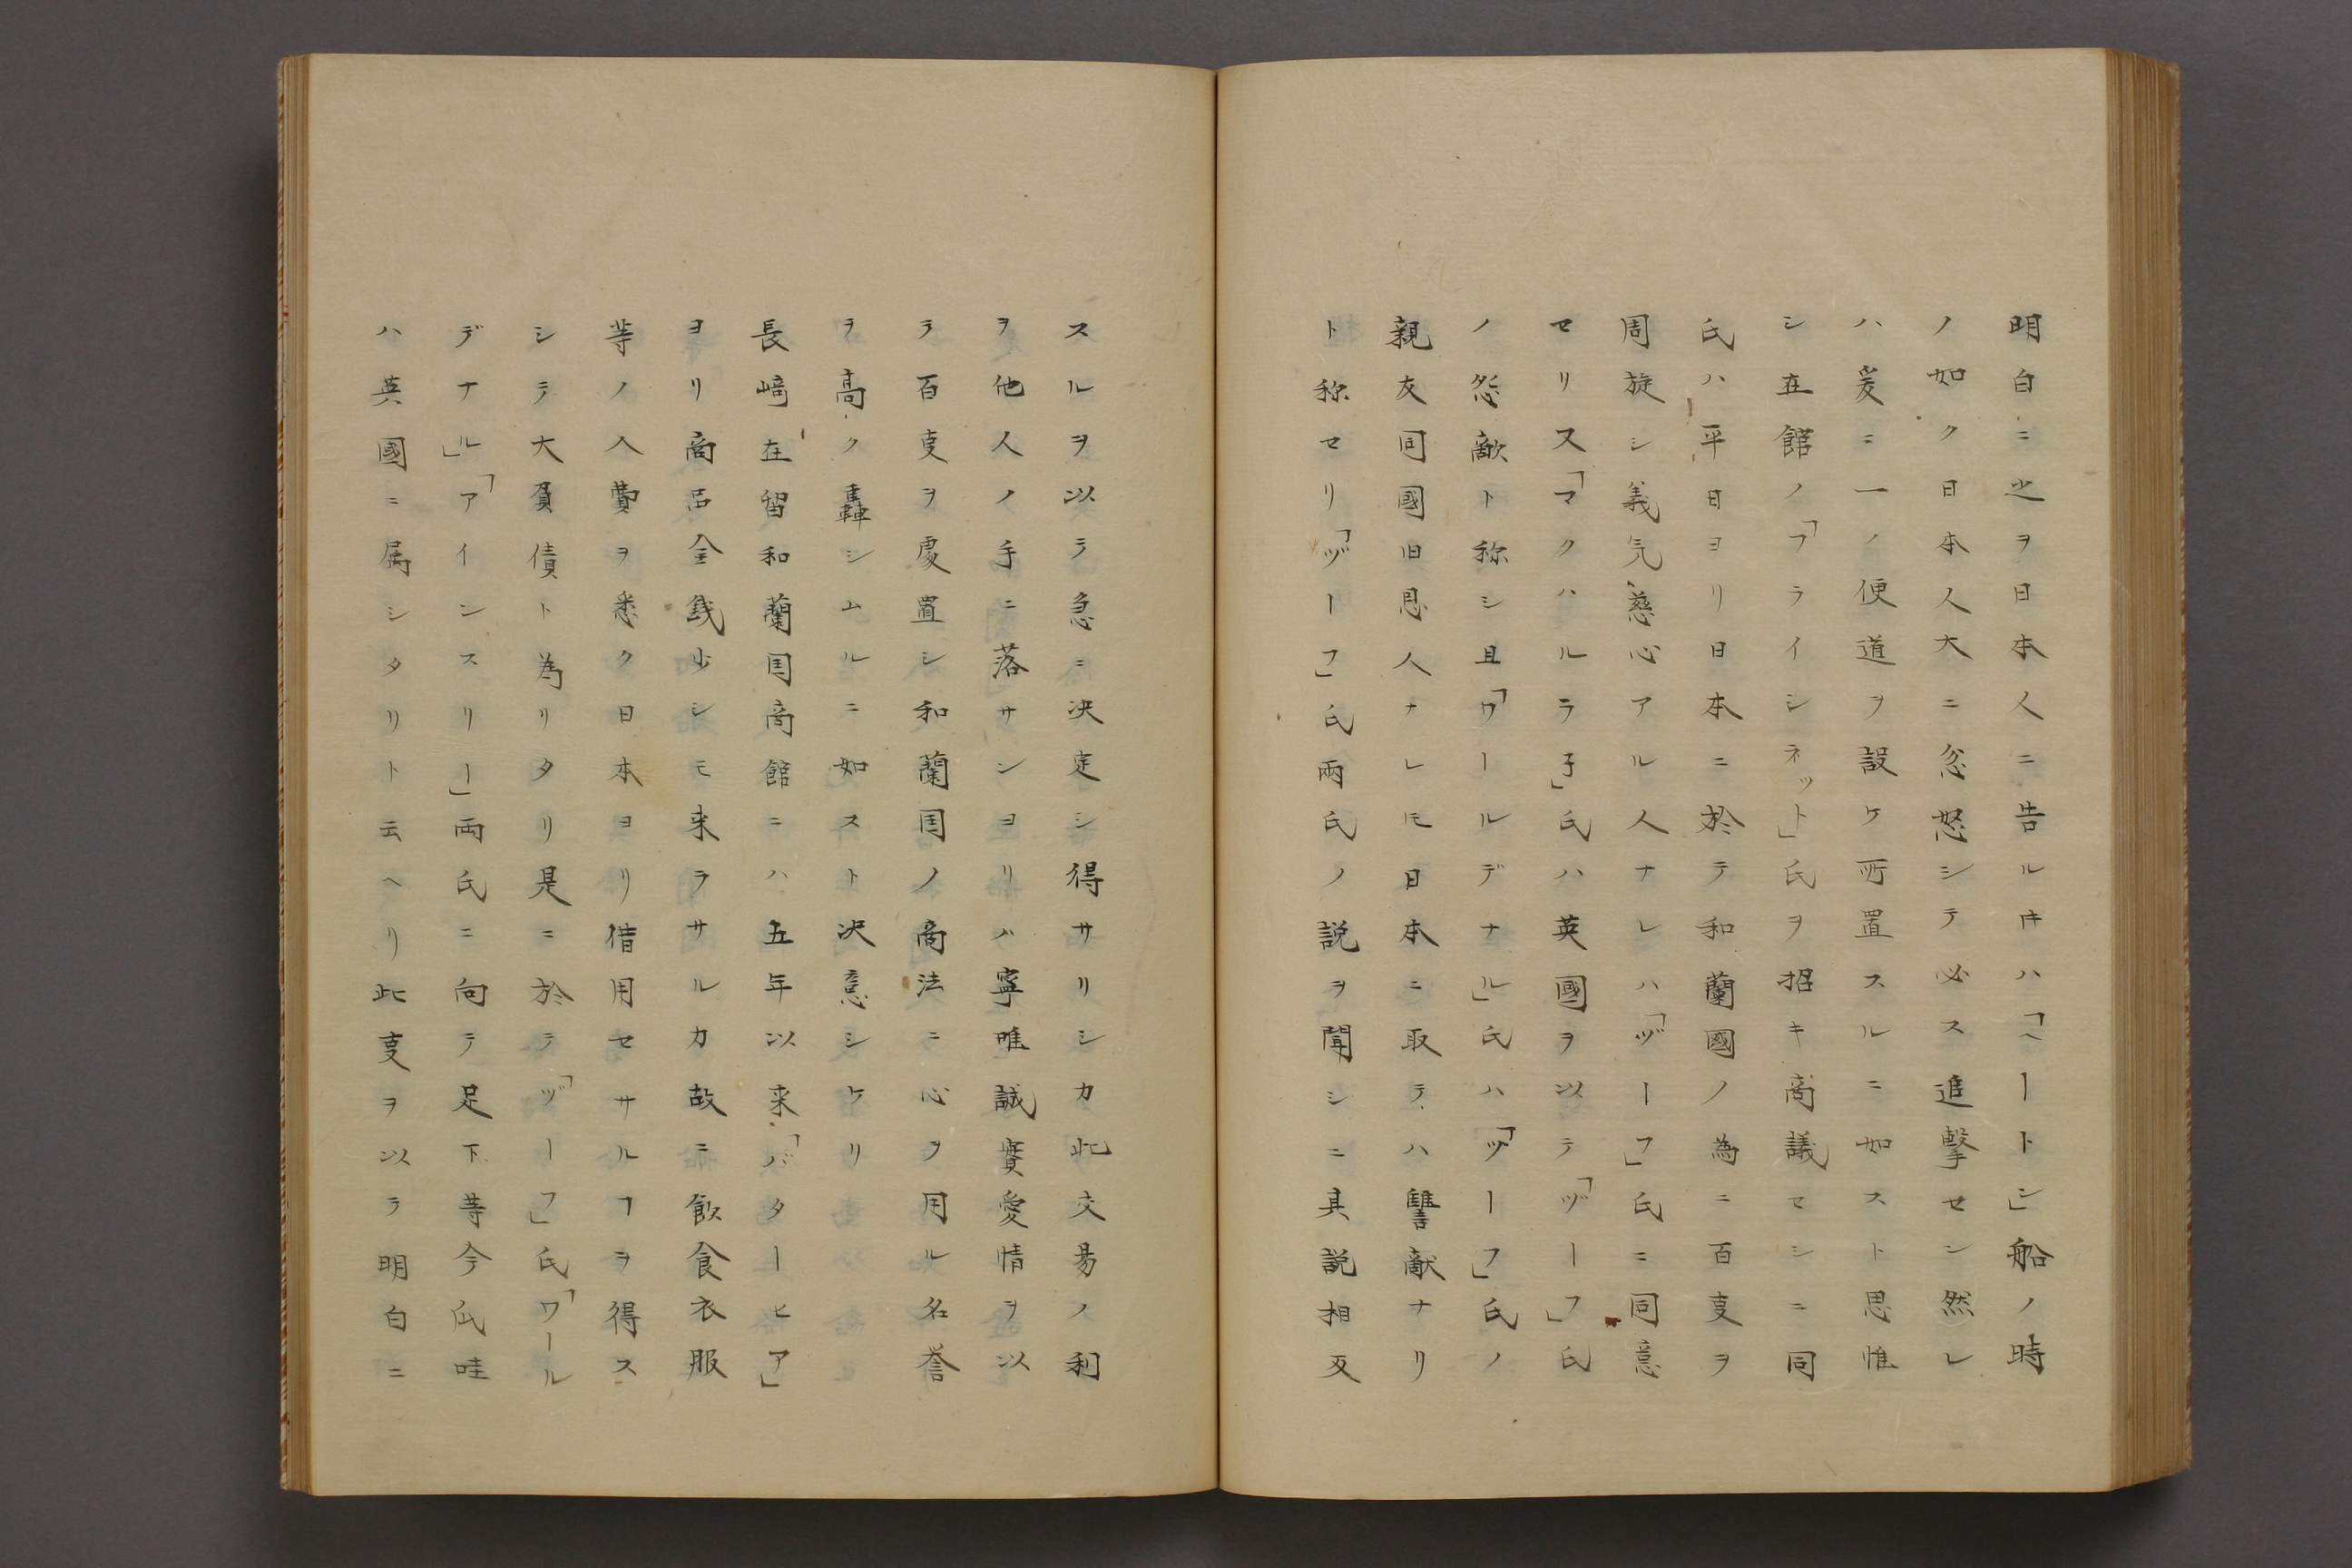 明白ニ之ヲ日本人ニ告ルキハ「ヘートシ」船ノ時
ノ如ク日本人大ニ忿怒シテ必ス追撃セン然レ
ハ爰ニ一ノ便道ヲ設ケ所置スルニ如スト思惟
シ在館ノ「フライシネット」氏ヲ招キ商議セシニ同
氏ハ平日ヨリ日本ニ於テ和蘭國ノ為ニ百事ヲ
周旋シ義氣慈心アル人ナレハ「ヅーフ」氏ニ同意
セリ又「マクハルラ子」氏ハ英國ヲ以テ「ヅーフ」氏
ノ怨敵ト称シ且「ワールデナル」氏ハ「ヅーフ」氏ノ
親友同國旧恩人ナレ𪜈日本ニ取テハ讐敵ナリ
ト称セリ「ヅーフ」氏兩氏ノ説ヲ聞シニ其説相反
スルヲ以テ急ニ决定シ得サリシカ此交易ノ利
ヲ他人ノ手ニ落サンヨリハ寧唯誠實愛情ヲ以
テ百事ヲ處置シ和蘭国ノ商法ニ心ヲ用ル名誉
ヲ高ク轟シムルニ如スト决意シケリ
長﨑在留和蘭国商館ニハ五年以来「バターヒア」
ヨリ商品金銭少シモ来ラサルカ故ニ飲食衣服
等ノ入費ヲ悉ク日本ヨリ借用セサルヿヲ得ス
シテ大負債ト為リタリ是ニ於テ「ヅーフ」氏「ワール
デナル」「アインスリー」両氏ニ向テ足下等今瓜哇
ハ英國ニ属シタリト云ヘリ此事ヲ以テ明白ニ